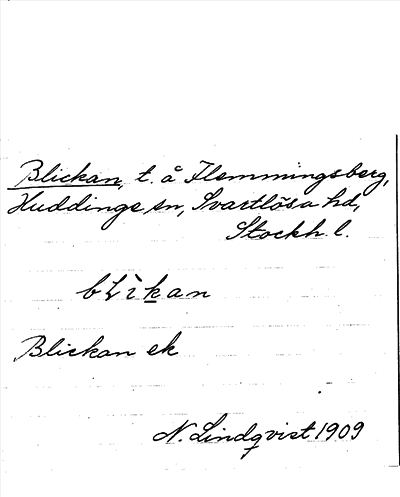 Blickan, t. å Flemmingsberg,
Huddinge sn, Svartlösa hd,
Stockh. l.
bLìkan
Blickan ek
N. Lindqvist 1909